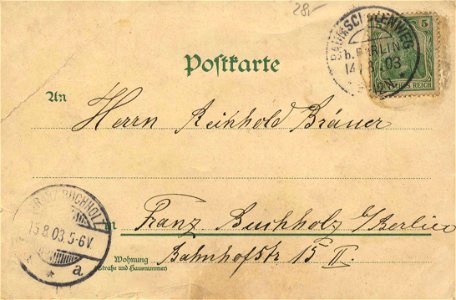 28.-
BAUMSCHULENWEG
b. BERLIN
14.8.03
5
REICH
Postkarte
An
Herrn Reinhold Bräuer
FRANZ. BUCHHOLZ
15.8.03.5-6V.
a
in
Franz Buchholz b/Berlin
Wohnung
(Straße und Hausnummer)
Bahnhofstr 15 II.